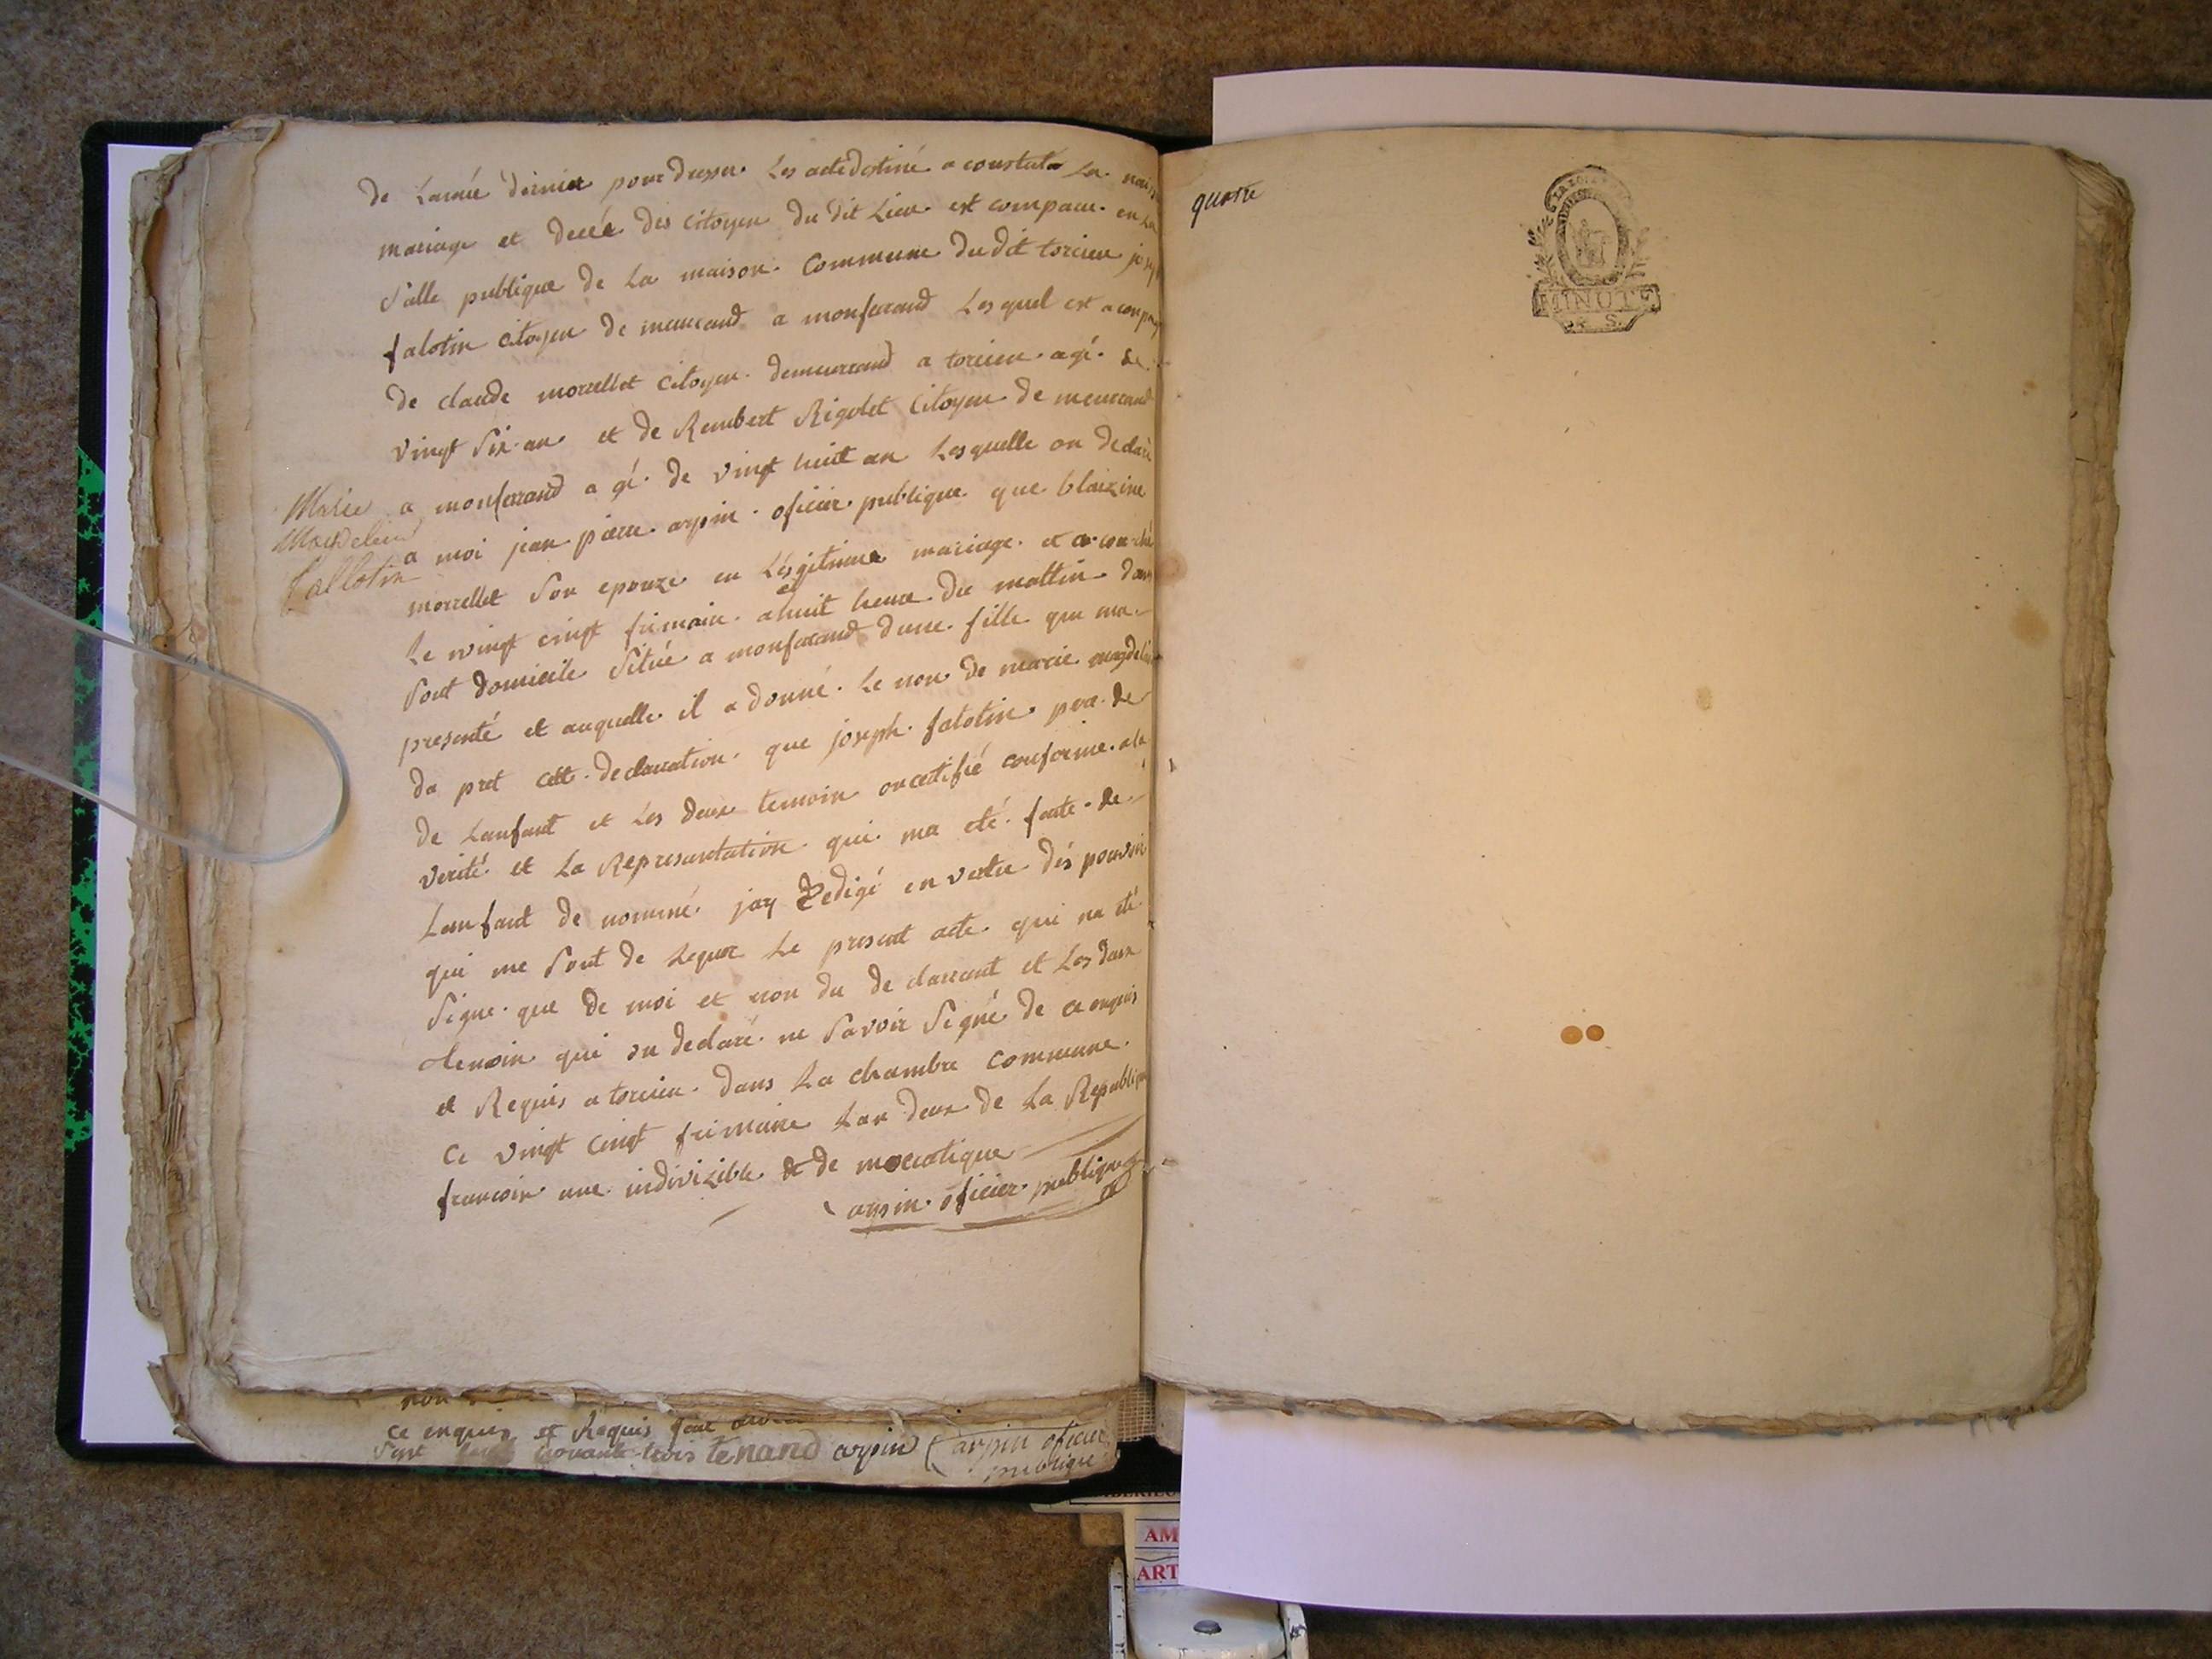 de Lannée dernier pour dresser Les acte destiné a constater La nais
mariage et decée des citoyen du dit Lieu est comparu en La
Salle publique de La maison Commune du dit torcieu jos
falotin citoyen de meurand a monferrand Lesquel est acomp
de claude morellet citoyen demeurrand a torcieu agé de
vingt Six an et de Rembert Rigolet Citoyen de meurrand
a monferrand agé de vingt huit an Lesquelle on declaré
a moi jean piere arpin oficier publique que blaizine
Marie
Magdeleine
fallotin
morrellet Son epouze en Lésgitime mariage et acouché
Le vingt cinqt frimaire a huit heure du mattin dans
Sont domicile Situé a monferrand dune fille que ma
presenté et auquelle il a donné Le non de marie magdelei
da pret cett declaration que joseph falotin pere de
de Lanfant et Les deux temoin on certifié conforme a la
verité et La Representation qui ma eté faite de
Lanfant de nommé jay Redigé en vertu dés pouvoir
qui me Sont de Legue Le present acte qui na eté
Signe que de moi et non du declarant et Les deux
temoin qui on declaré ne Savoir Signé de ce enquis
et Requis a torcieu dans La chambre commune
Ce vingt cinqt frimaire Lan deux de La Republique
francoise une indivizible et de mocratique
arpin oficier publique
non
ce enquis et Requis
nonante trois tenand arpin arpin oficier
publique
quatre
MINUTE
S.
AM
ART